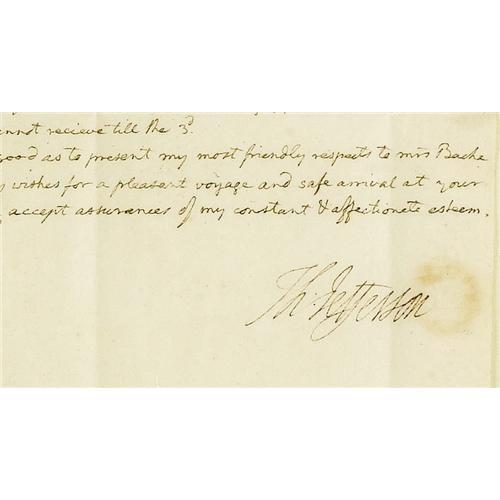 annot recieve till the 3d.
good as to present my most friendly respects to mrs Bache
wishes for a pleasant voyage and safe arrival at your
accept assurances of my constant & affectionate esteem.
Th: Jefferson